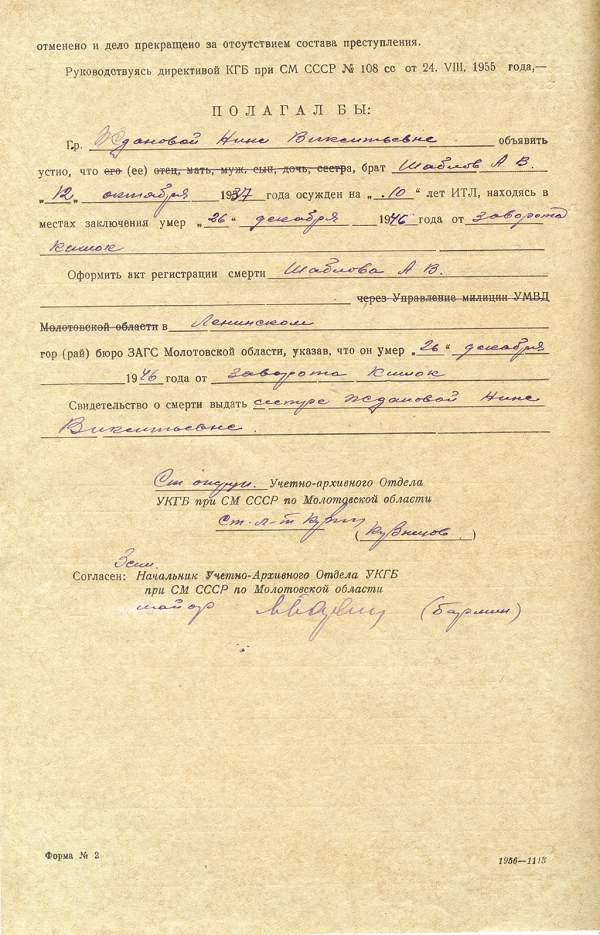 отменено и дело прекращено за отсутствием состава преступления.
Руководствуясь директивой КГБ при СМ СССР № 108 сс от 24. VIII. 1955 года,—
ПОЛАГАЛ БЫ:
Гр. Ждановой Нине Викентьевне объявить
устно, что его (ее) отец, мать, муж, сын, дочь, сестра, брат Шаблов А В.
„12„ октября 1937 года осужден на „10„ лет ИТЛ, находясь в
местах заключения умер „26“ декабря 1946 года от заворота
кишок
Оформить акт регистрации смерти Шаблова А В.
через Управление милиции УМВД
Молотовской области в Ленинском
гор (рай) бюро ЗАГС Молотовской области, указав, что он умер „26“ декабря
1946 года от заворота кишок
Свидетельство о смерти выдать сестре Ждановой Нине
Викентьевне.
Ст оперуп. Учетно-архивного Отдела
УКГБ при СМ СССР по Молотовской области
Ст. л-т
(Кузнецов)
Зам.
Согласен: Начальник Учетно-Архивного Отдела УКГБ
при СМ СССР по Молотовской области
майор (Бармин)
Форма № 2
1956—1115